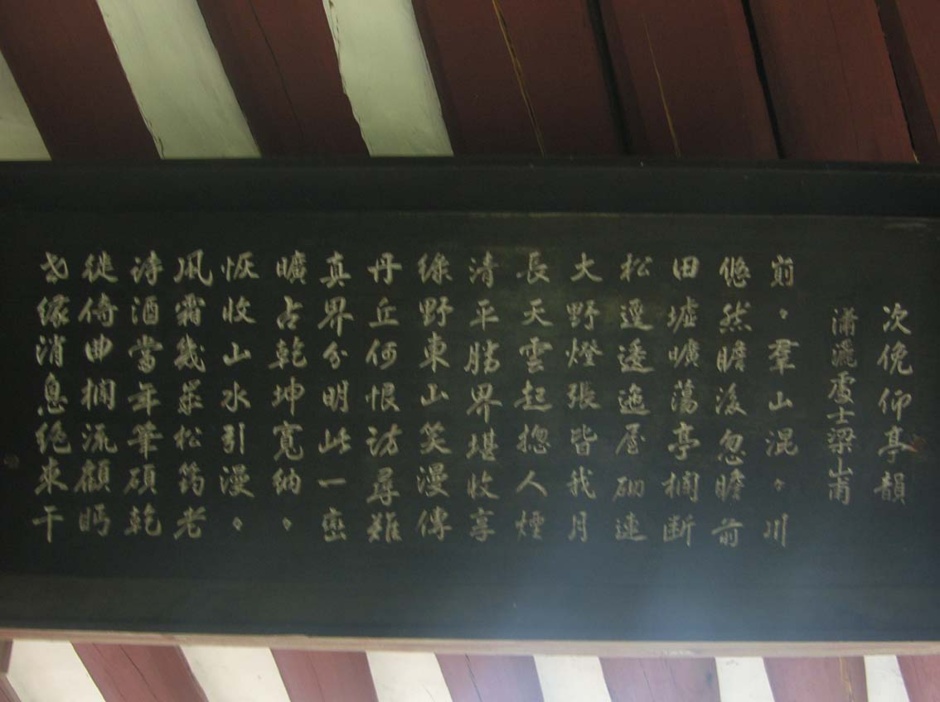 次俛仰亭韻
瀟灑處士梁山甫
崱〻羣山混〻川
悠然瞻後忽瞻前
田墟曠蕩亭欄断
松逕逶迤屋砌連
大野燈張皆我月
長天雲起摠人煙
清平勝界堪收享
綠野東山笑漫傳
丹丘何恨訪尋難
真界分明此一巒
曠占乾坤寬納〻
恢收山水引漫〻
風霜幾歲松筠老
詩酒當年筆硯乾
徙倚曲欄流顧眄
世緣消息絶來干